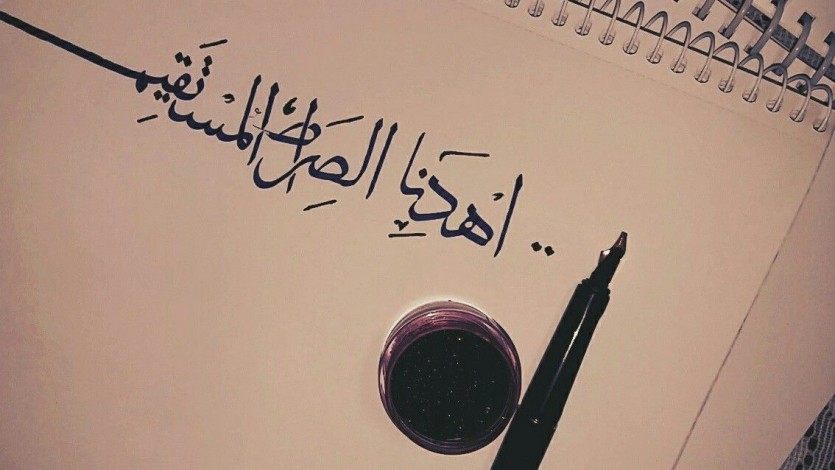 .. اهْدِنَا الصِّرَاطَ الْمُسْتَقِيمَ